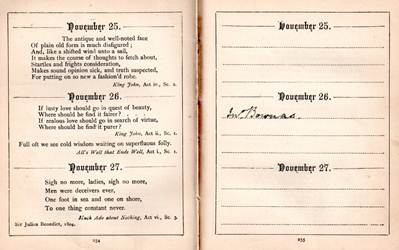 November 25.
The antique and well-noted face
Of plain old form is much disfigured;
And, like a shifted wind unto a sail,
It makes the course of thoughts to fetch about,
Startles and frights consideration,
Makes sound opinion sick, and truth suspected,
For putting on so new a fashion'd robe.
King John, Act iv., Sc. 2.
November 26.
If lusty love should go in quest of beauty,
Where should he find it fairer? . . . .
If zealous love should go in search of virtue,
Where should he find it purer?
King John, Act ii., Sc. 1.
Full oft we see cold wisdom waiting on superfluous folly.
All's Well that Ends Well, Act i., Sc. 1.
November 27.
Sigh no more, ladies, sigh no more,
Men were deceivers ever,
One foot in sea and one on shore,
To one thing constant never.
Much Ado about Nothing, Act vi., Sc. 3.
Sir Julius Benedict, 1804.
234
November 25.
November 26.
November 27.
235